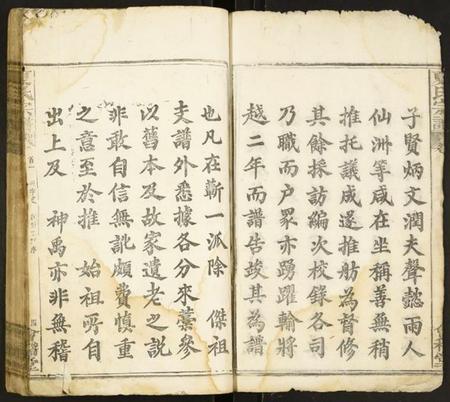 子賢炳文潤夫聲懿雨人
仙洲等咸在坐稱善無稍
推托議成遂推舫為督修
其餘採訪編次校錄各司
乃職而户眾亦踴躍輸將
越二年而譜告竣其為譜
也凡在蘄一派除 傑祖
支譜外悉據各分來藁參
以舊本及故家遺老之説
非敢自信無訛頗費慎重
之意至於推 始祖所自
出上及 神禹亦非無稽